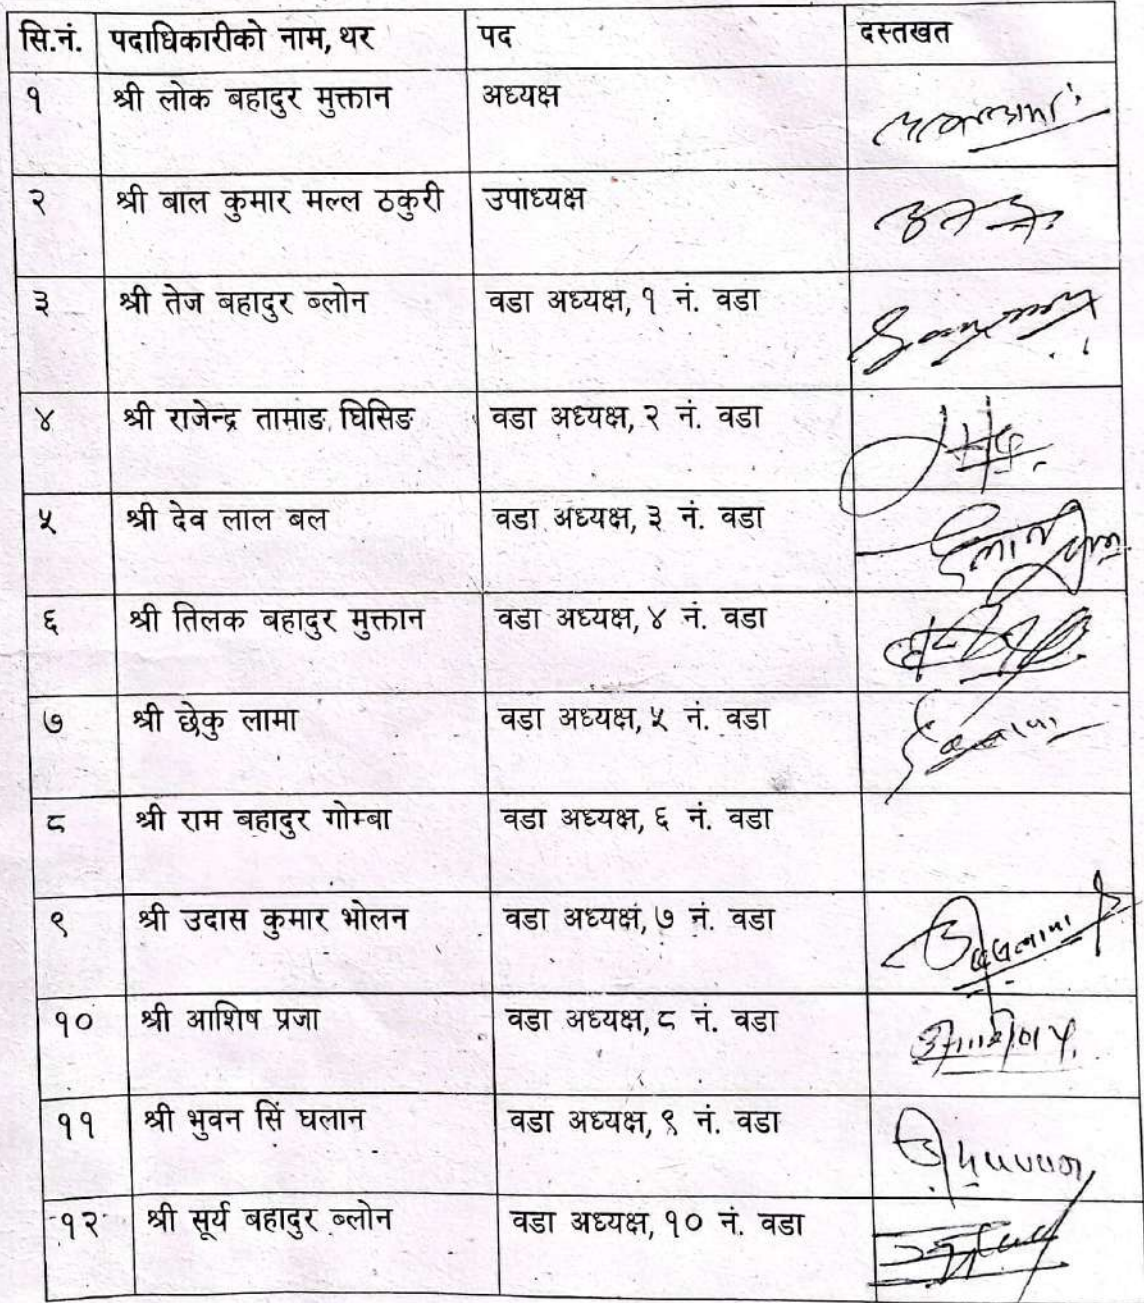 सि.नं. पदाधिकारीको नाम, थर पद दस्तखत
१ श्री लोक बहादुर मुक्तान अध्यक्ष
२ श्री बाल कुमार मल्ल ठकुरी उपाध्यक्ष
३ श्री तेज बहादुर ब्लोन वडा अध्यक्ष, १ नं. वडा
४ श्री राजेन्द्र तामाङ घिसिङ वडा अध्यक्ष, २ नं. वडा
५ श्री देव लाल बल वडा अध्यक्ष, ३ नं. वडा
६ श्री तिलक बहादुर मुक्तान वडा अध्यक्ष, ४ नं. वडा
७ श्री छेकु लामा वडा अध्यक्ष, ५ नं. वडा
८ श्री राम बहादुर गोम्बा वडा अध्यक्ष, ६ नं. वडा
९ श्री उदास कुमार भोलन वडा अध्यक्ष, ७ नं. वडा
१० श्री आशिष प्रजा वडा अध्यक्ष, ८ नं. वडा
११ श्री भुवन सिं घलान वडा अध्यक्ष, ९ नं. वडा
१२ श्री सूर्य बहादुर ब्लोन वडा अध्यक्ष, १० नं. वडा